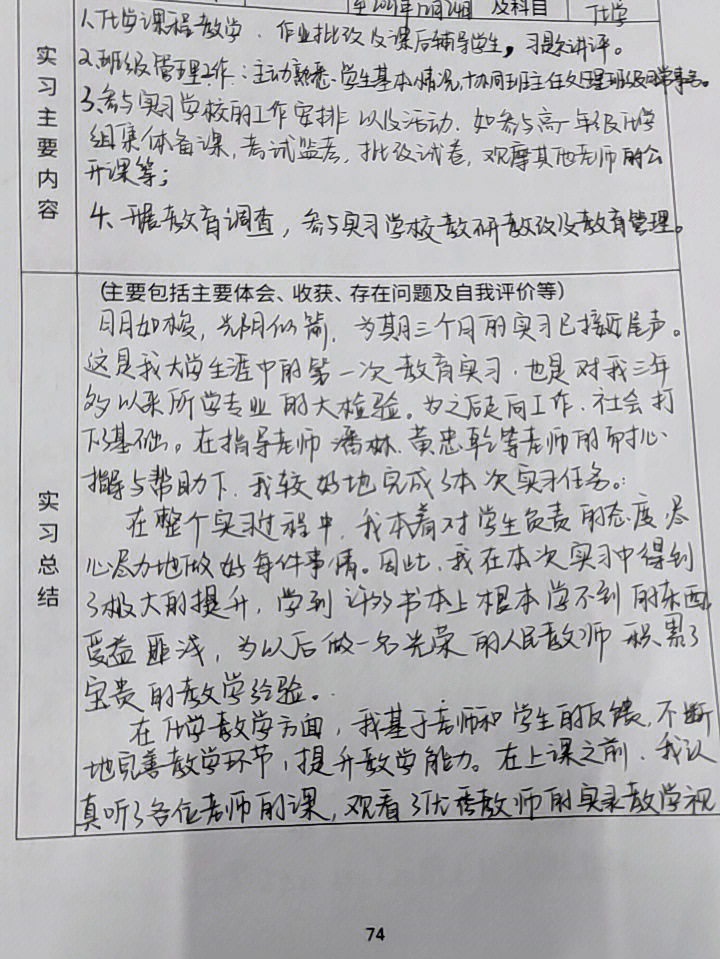 至2021年12月24日 及科目 化学
实习主要内容
1.化学课程教学、作业批改及课后辅导学生,习题讲评。
2.班级管理工作:主动熟悉学生基本情况,协同班主任处理班级日常事务。
3.参与实习学校的工作安排以及活动.如参与高一年级化学
组集体备课,考试监考,批改试卷,观摩其他老师的公
开课等;
4、开展教育调查,参与实习学校教研教改及教育管理。
实习总结
(主要包括主要体会、收获、存在问题及自我评价等)
日月如梭,光阴似箭.为期三个月的实习已接近尾声。
这是我大学生涯中的第一次教育实习.也是对我三年
多以来所学专业的大检验。为之后走向工作.社会打
下了基础。在指导老师潘林.黄忠乾等老师的耐心
指导与帮助下.我较好地完成了本次实习任务。
在整个实习过程中,我本着对学生负责的态度,尽
心尽力地做好每件事情。因此,我在本次实习中得到
了极大的提升,学到许多书本上根本学不到的东西,
受益匪浅,为以后做一名光荣的人民教师积累了
宝贵的教学经验。
在化学教学方面,我基于老师和学生的反馈,不断
地完善教学环节,提升教学能力。在上课之前.我认
真听了各位老师的课,观看了优秀教师的实录教学视
74